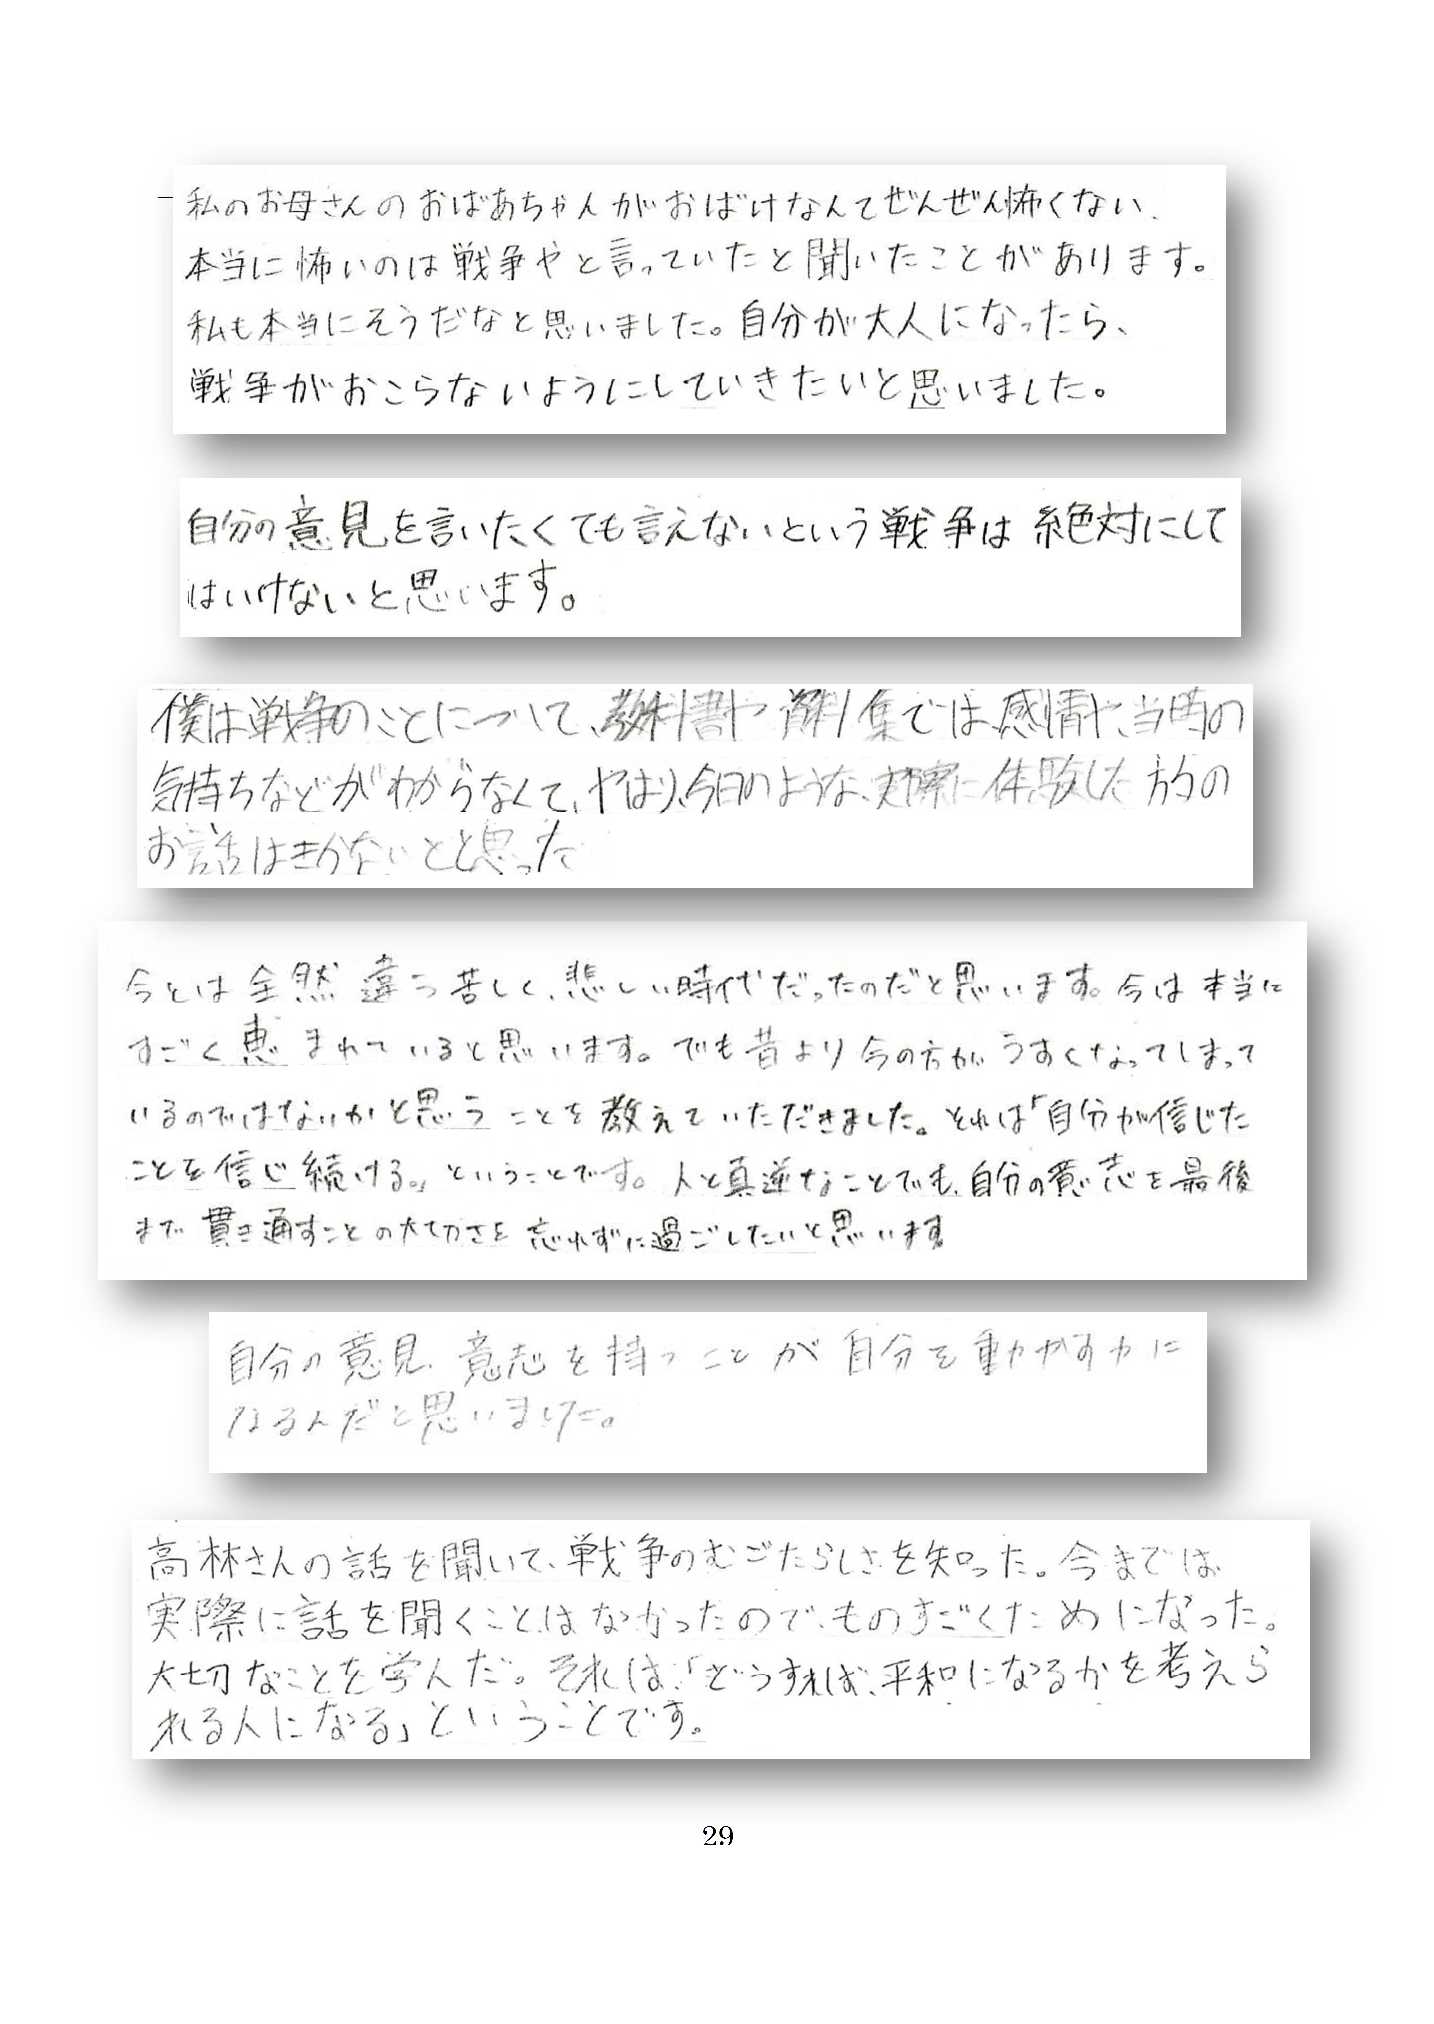 私のお母さんのおばあちゃんがおばけなんてぜんぜん怖くない、
本当に怖いのは戦争やと言っていたと聞いたことがあります。
私も本当にそうだなと思いました。自分が大人になったら、
戦争がおこらないようにしていきたいと思いました。
自分の意見を言いたくても言えないという戦争は絶対にして
はいけないと思います。
僕は戦争のことについて、教科書や資料集では、感情や、当時の
気持ちなどがわからなくて、やはり、今日のような、実際に体験した方の
お話はきかないとと思った
今とは全然違う苦しく、悲しい時代だったのだと思います。今は本当に
すごく恵まれていると思います。でも昔より今の方がうすくなってしまって
いるのではないかと思うことを教えていただきました。それは「自分が信じた
ことを信じ続ける。」ということです。人と真逆なことでも、自分の意志を最後
まで貫き通すことの大切さを忘れずに過ごしたいと思います
自分の意見、意志を持つことが自分を動かす力に
なるんだと思いました。
高林さんの話を聞いて、戦争のむごたらしさを知った。今までは
実際に話を聞くことはなかったので、ものすごくためになった。
大切なことを学んだ。それは、「どうすれば、平和になるかを考えら
れる人になる」ということです。
29